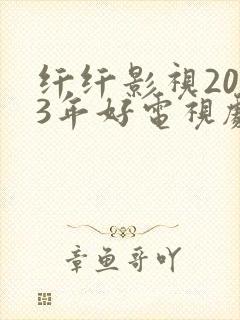 纤纤影視20
3年好電視劇
章鱼哥吖